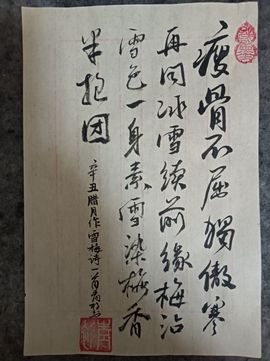 瘦骨不屈独傲寒
再同冰雪续前缘梅沾
雪色一身素雪染梅香
半抱团
辛丑腊月作雪梅诗一首